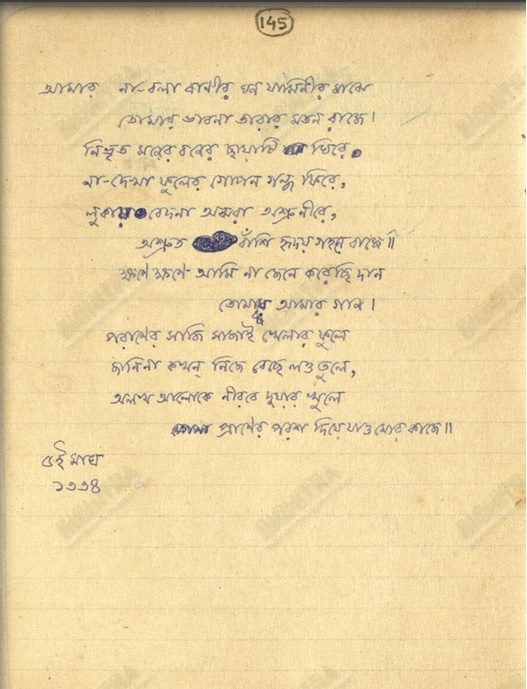 145
আমার না-বলা বাণীর ঘন যামিনীর মাঝে
তোমার ভাবনা তারার মতন রাজে।
নিভৃত মনের বনের ছায়াটি ঘিরে
না-দেখা ফুলের গোপন গন্ধ ফিরে,
লুকায় বেদনা অঝরা অশ্রুনীরে,
অশ্রুত বাঁশি হৃদয়গহনে বাজে॥
ক্ষণে ক্ষণে আমি না জেনে করেছি দান
তোমায় আমার গান।
পরাণের সাজি সাজাই খেলার ফুলে
জানিনা কখন্ নিজে বেছে লও তুলে,
অলখ আলোকে নীরবে দুয়ার খুলে
প্রাণের পরশ দিয়ে যাও মোর কাজে॥
৫ই মাঘ
১৩৩৪
BICHITRA